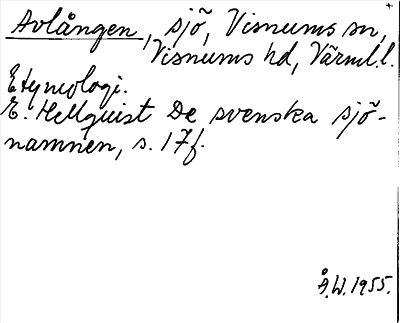 Avlången, sjö, Visnums sn,
Visnums hd, Värml. l.
Etymologi.
E. Hellquist De svenska sjö-
namnen, s. 17f.
Å.W. 1955.